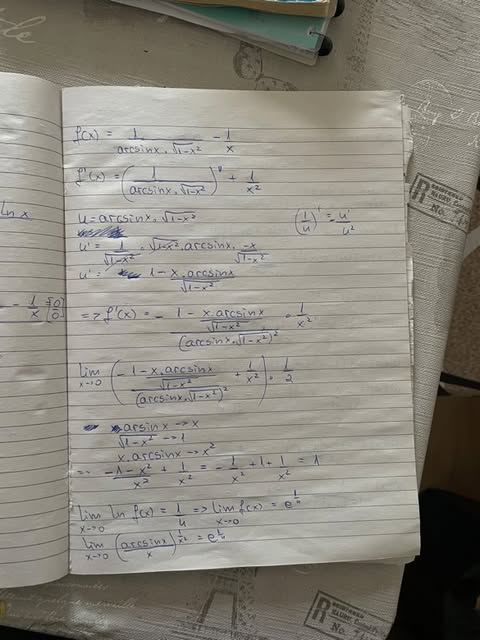 f(x) = 1/(arcsinx · √(1-x²)) - 1/x
f'(x) = (1/(arcsinx · √(1-x²)))' + 1/x²
u = arcsinx · √(1-x²)
(1/u)' = u'/u²
u' = 1/√(1-x²) · √(1-x²) · arcsinx · -x/√(1-x²)
u' = 1 - x · arcsinx/√(1-x²)
=> f'(x) = - (1 - x · arcsinx/√(1-x²))/(arcsinx · √(1-x²))² = 1/x²
lim x→0 (- (1 - x · arcsinx/√(1-x²))/(arcsinx · √(1-x²))² + 1/x²) · 1/2
arsinx → x
√(1-x²) → 1
x · arcsinx → x²
-1-x²/x² + 1/x² = -1/x² + 1 + 1/x² = 1
lim x→0 ln f(x) = 1/4 => lim x→0 f(x) = e^(1/4)
lim x→0 (arcsinx/x)^(1/x²) = e^(1/4)
ln x
- 1/x [0/0]